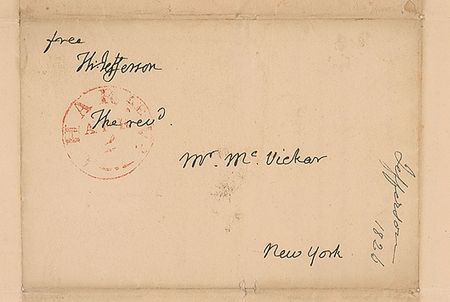 free
Th: Jefferson
The revd.
Mr. Mc. Vickar
New York.
Jefferson
1826